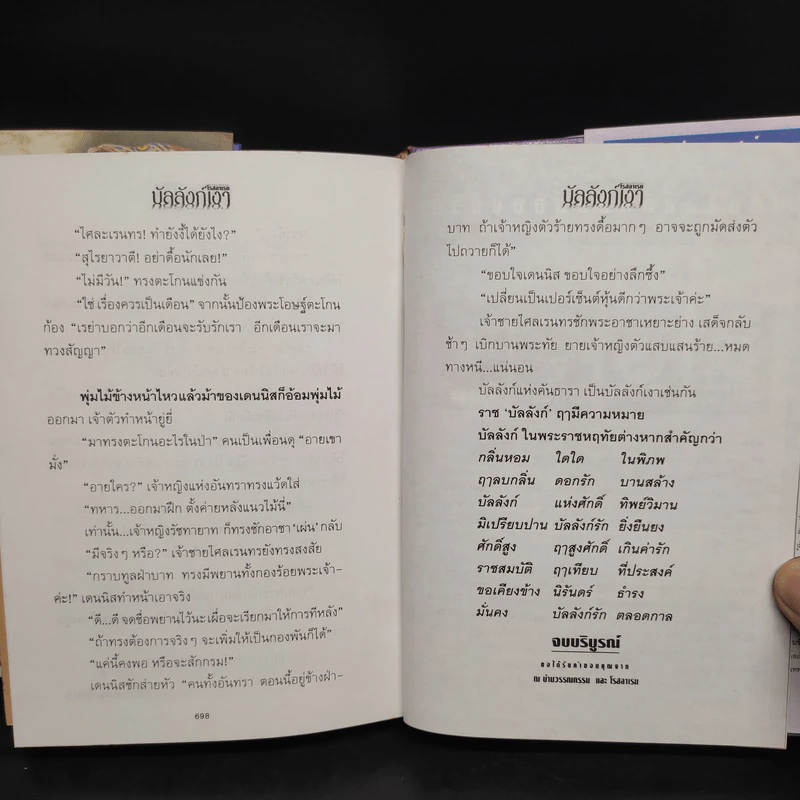 บัลลังก์เงา
โรสลาเรน
"ไศละเรนทร! ทำยังงี้ได้ยังไง?"
"สุไรยาวาตี! อย่าดื้อนักเลย!"
"ไม่มีวัน!" ทรงตะโกนแข่งกัน
"ใช่ เรื่องควรเป็นเดือน" จากนั้นป้องพระโอษฐ์ตะโกน
ก้อง "เรย่าบอกว่าอีกเดือนจะรับรักเรา อีกเดือนเราจะมา
ทวงสัญญา"
พุ่มไม้ข้างหน้าไหวแล้วม้าของเดนนิสก็อ้อมพุ่มไม้
ออกมา เจ้าตัวทำหน้ายู่ยี่
"มาทรงตะโกนอะไรในป่า" คนเป็นเพื่อนดุ "อายเขา
มั่ง"
"อายใคร?" เจ้าหญิงแห่งอันทราทรงแว้ดใส่
"ทหาร...ออกมาฝึก ตั้งค่ายหลังแนวไม้นี่"
เท่านั้น...เจ้าหญิงรัชทายาท ก็ทรงชักอาชา 'เผ่น' กลับ
"มีจริงๆ หรือ?" เจ้าชายไศลเรนทรยังทรงสงสัย
"กราบทูลฝ่าบาท ทรงมีพยานทั้งกองร้อยพระเจ้า-
ค่ะ!" เดนนิสทำหน้าเอาจริง
"ดี...ดี จดชื่อพยานไว้นะเผื่อจะเรียกมาให้การทีหลัง"
"ถ้าทรงต้องการจริงๆ จะเพิ่มให้เป็นกองพันก็ได้"
"แค่นี้คงพอ หรือจะสักกรม!"
เดนนิสชักส่ายหัว "คนทั้งอันทรา ตอนนี้อยู่ข้างฝ่า-
698
บัลลังก์เงา
โรสลาเรน
บาท ถ้าเจ้าหญิงตัวร้ายทรงดื้อมากๆ อาจจะถูกมัดส่งตัว
ไปถวายก็ได้"
"ขอบใจเดนนิส ขอบใจอย่างลึกซึ้ง"
"เปลี่ยนเป็นเปอร์เซ็นต์หุ้นดีกว่าพระเจ้าค่ะ"
เจ้าชายไศลเรนทรชักพระอาชาเหยาะย่าง เสด็จกลับ
ช้าๆ เบิกบานพระทัย ยายเจ้าหญิงตัวแสบแสนร้าย...หมด
ทางหนี...แน่นอน
บัลลังก์แห่งคันธารา เป็นบัลลังก์เงาเช่นกัน
ราช 'บัลลังก์' ฤามีความหมาย
บัลลังก์ ในพระราชหฤทัยต่างหากสำคัญกว่า
กลิ่นหอม ใดใด ในพิภพ
ฤาลบกลิ่น ดอกรัก บานสล้าง
บัลลังก์ แห่งศักดิ์ ทิพย์วิมาน
มิเปรียบปาน บัลลังก์รัก ยิ่งยืนยง
ศักดิ์สูง ฤาสูงศักดิ์ เกินค่ารัก
ราชสมบัติ ฤาเทียบ ที่ประสงค์
ขอเคียงข้าง นิรันดร์ ธำรง
มั่นคง บัลลังก์รัก ตลอดกาล
จบบริบูรณ์
ขอได้รับคำขอบคุณจาก
ณ บ้านวรรณกรรม และ โรสลาเรน